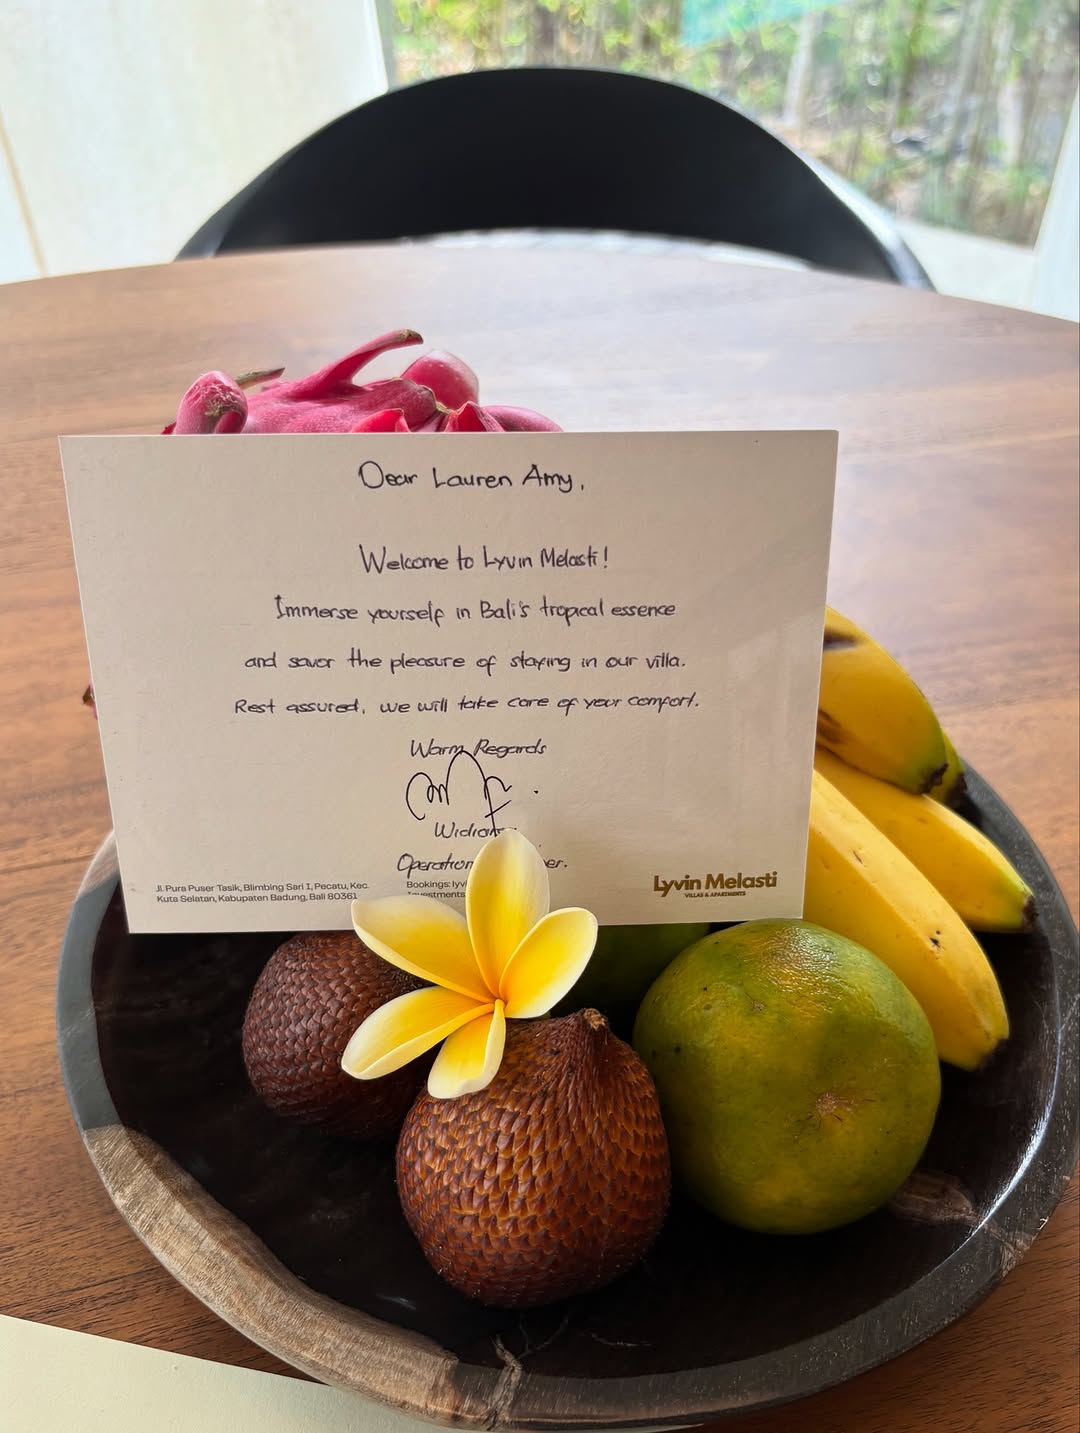 Dear Lauren Amy,
Welcome to Lyvin Melasti!
Immerse yourself in Bali's tropical essence
and savor the pleasure of staying in our villa.
Rest assured, we will take care of your comfort.
Warm Regards
Jl. Pura Puser Tasik, Blimbing Sari I, Pecatu, Kec.
Kuta Selatan, Kabupaten Badung, Bali 80361
Bookings:
Lyvin Melasti
VILLAS & APARTMENTS